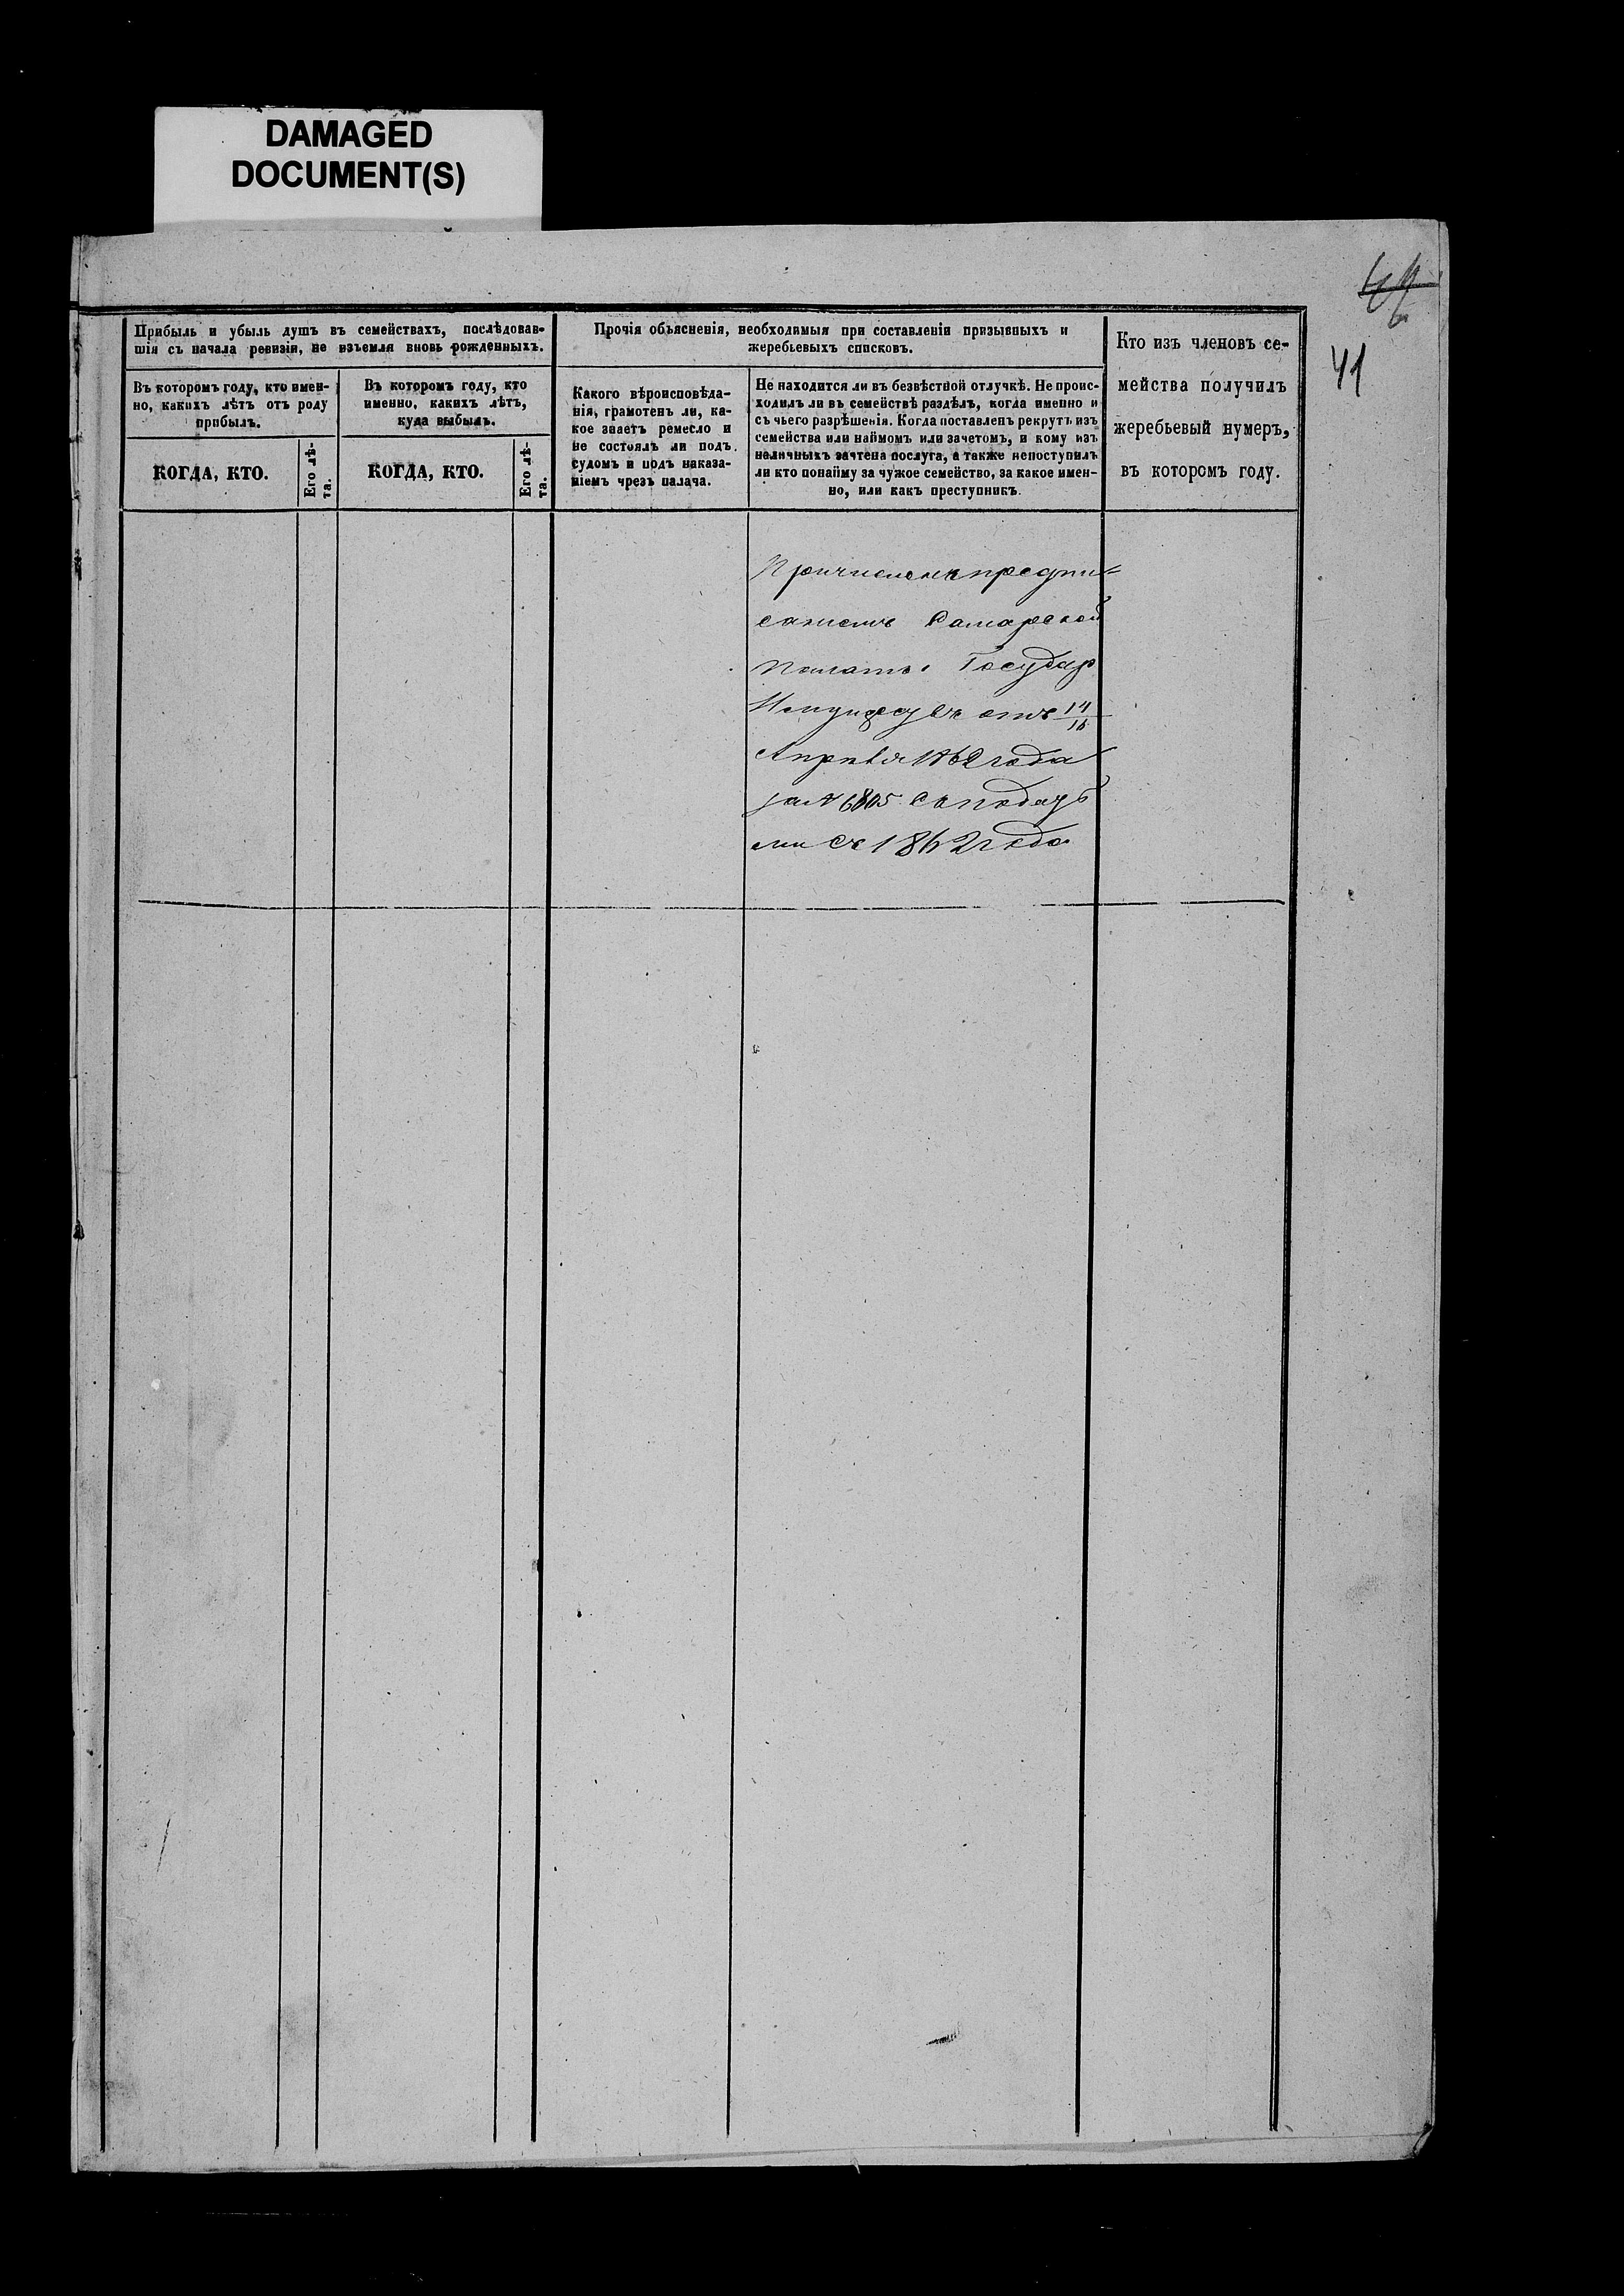 DAMAGED
DOCUMENT(S)
41
Прибыль и убыль душъ въ семействахъ, послѣдовав-
шія съ начала ревизіи, не изъемля вновь рожденныхъ.
Въ которомъ году, кто имен-
но, какихъ лѣтъ отъ роду
прибылъ.
КОГДА, КТО.
Его лѣ-
та.
Въ которомъ году, кто
именно, какихъ лѣтъ,
куда выбылъ.
КОГДА, КТО.
Его лѣ-
та.
Прочія объясненія, необходимыя при составленіи призывныхъ и
жеребьевыхъ списковъ.
Какого вѣроисповѣда-
нія, грамотенъ ли, ка-
кое знаетъ ремесло и
не состоялъ ли подъ
судомъ и подъ наказа-
ніемъ чрезъ палача.
Не находится ли въ безвѣстной отлучкѣ. Не проис-
ходилъ ли въ семействѣ раздѣлъ, когда именно и
съ чьего разрѣшенія. Когда поставленъ рекрутъ изъ
семейства или наймомъ или зачетомъ, и кому изъ
наличныхъ зачтена послуга, а также непоступилъ
ли кто понайму за чужое семейство, за какое имен-
но, или какъ преступникъ.
Кто изъ членовъ се-
мейства получилъ
жеребьевый нумеръ,
въ которомъ году.
Причисленъ предпи=
саніемъ Самарской
Палаты Государ
Имуществъ отъ 14/16
Апрѣля 1862 года
за № 6805 съ подать
ми съ 1862 года